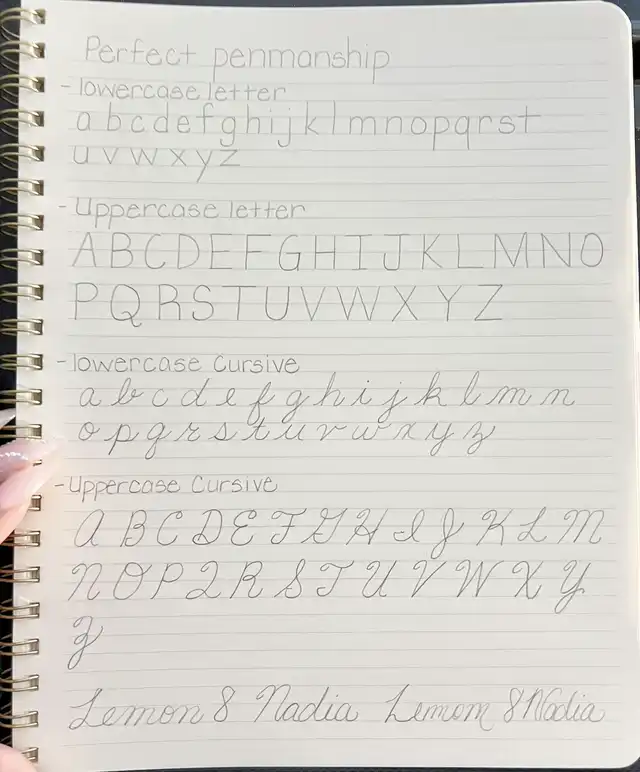 Perfect penmanship
- lowercase letter
a b c d e f g h i j k l m n o p q r s t
u v w x y z
- Uppercase letter
A B C D E F G H I J K L M N O
P Q R S T U V W X Y Z
- lowercase Cursive
a b c d e f g h i j k l m n
o p q r s t u v w x y z
- Uppercase Cursive
A B C D E F G H I J K L M
N O P Q R S T U V W X Y
Z
Lemon 8 Nadia Lemom 8 Nadia